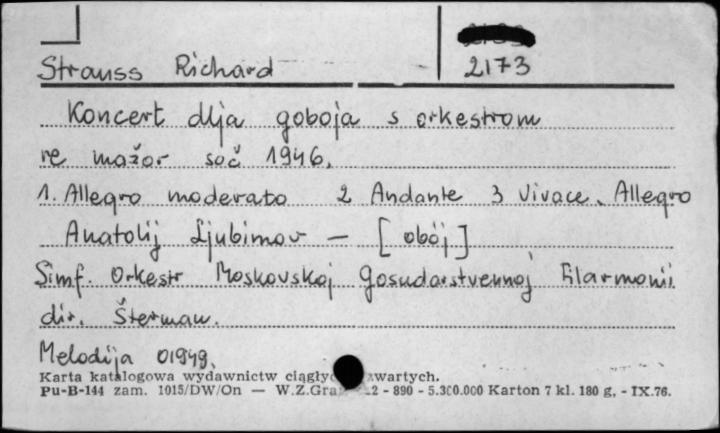 Strauss Richard 2173
Koncert dlja goboja s orkestrom
re mažor soč 1946.
1. Allegro moderato 2 Andante 3 Vivace, Allegro
Anatolij Ljubimov — [obój]
Simf. Orkestr Moskovskoj Gosudarstvennoj Filarmonii
dir. Šterman.
Melodija 01949.
Karta katalogowa wydawnictw
Pu-B-144 zam. 1015/DW/On — 2 - 890 - 5.300.000 Karton 7 kl. 180 g. - IX.76.